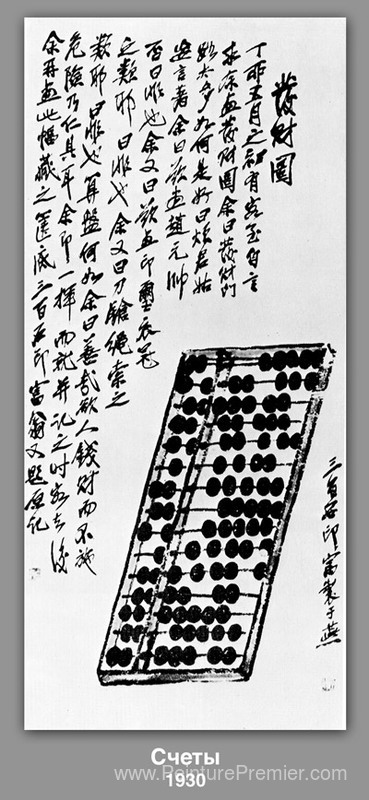 發財圖
丁卯五月之初有客至自言
求余畫發財圖余曰發財門
路太多如何是好曰煩君姑
妄言著余曰欲畫趙元帥
否曰非也余又曰欲畫印璽衣冠
之類耶曰非也余又曰刀鎗繩索之
類耶曰非也算盤何如余曰善哉欲人錢財而不施
危險乃仁具耳余即一揮而就并記之時客去後
余再畫此幅藏之篋底三百石印富翁又題原記
三百石印富製于燕
Счеты
1930
www.PeinturePremier.com